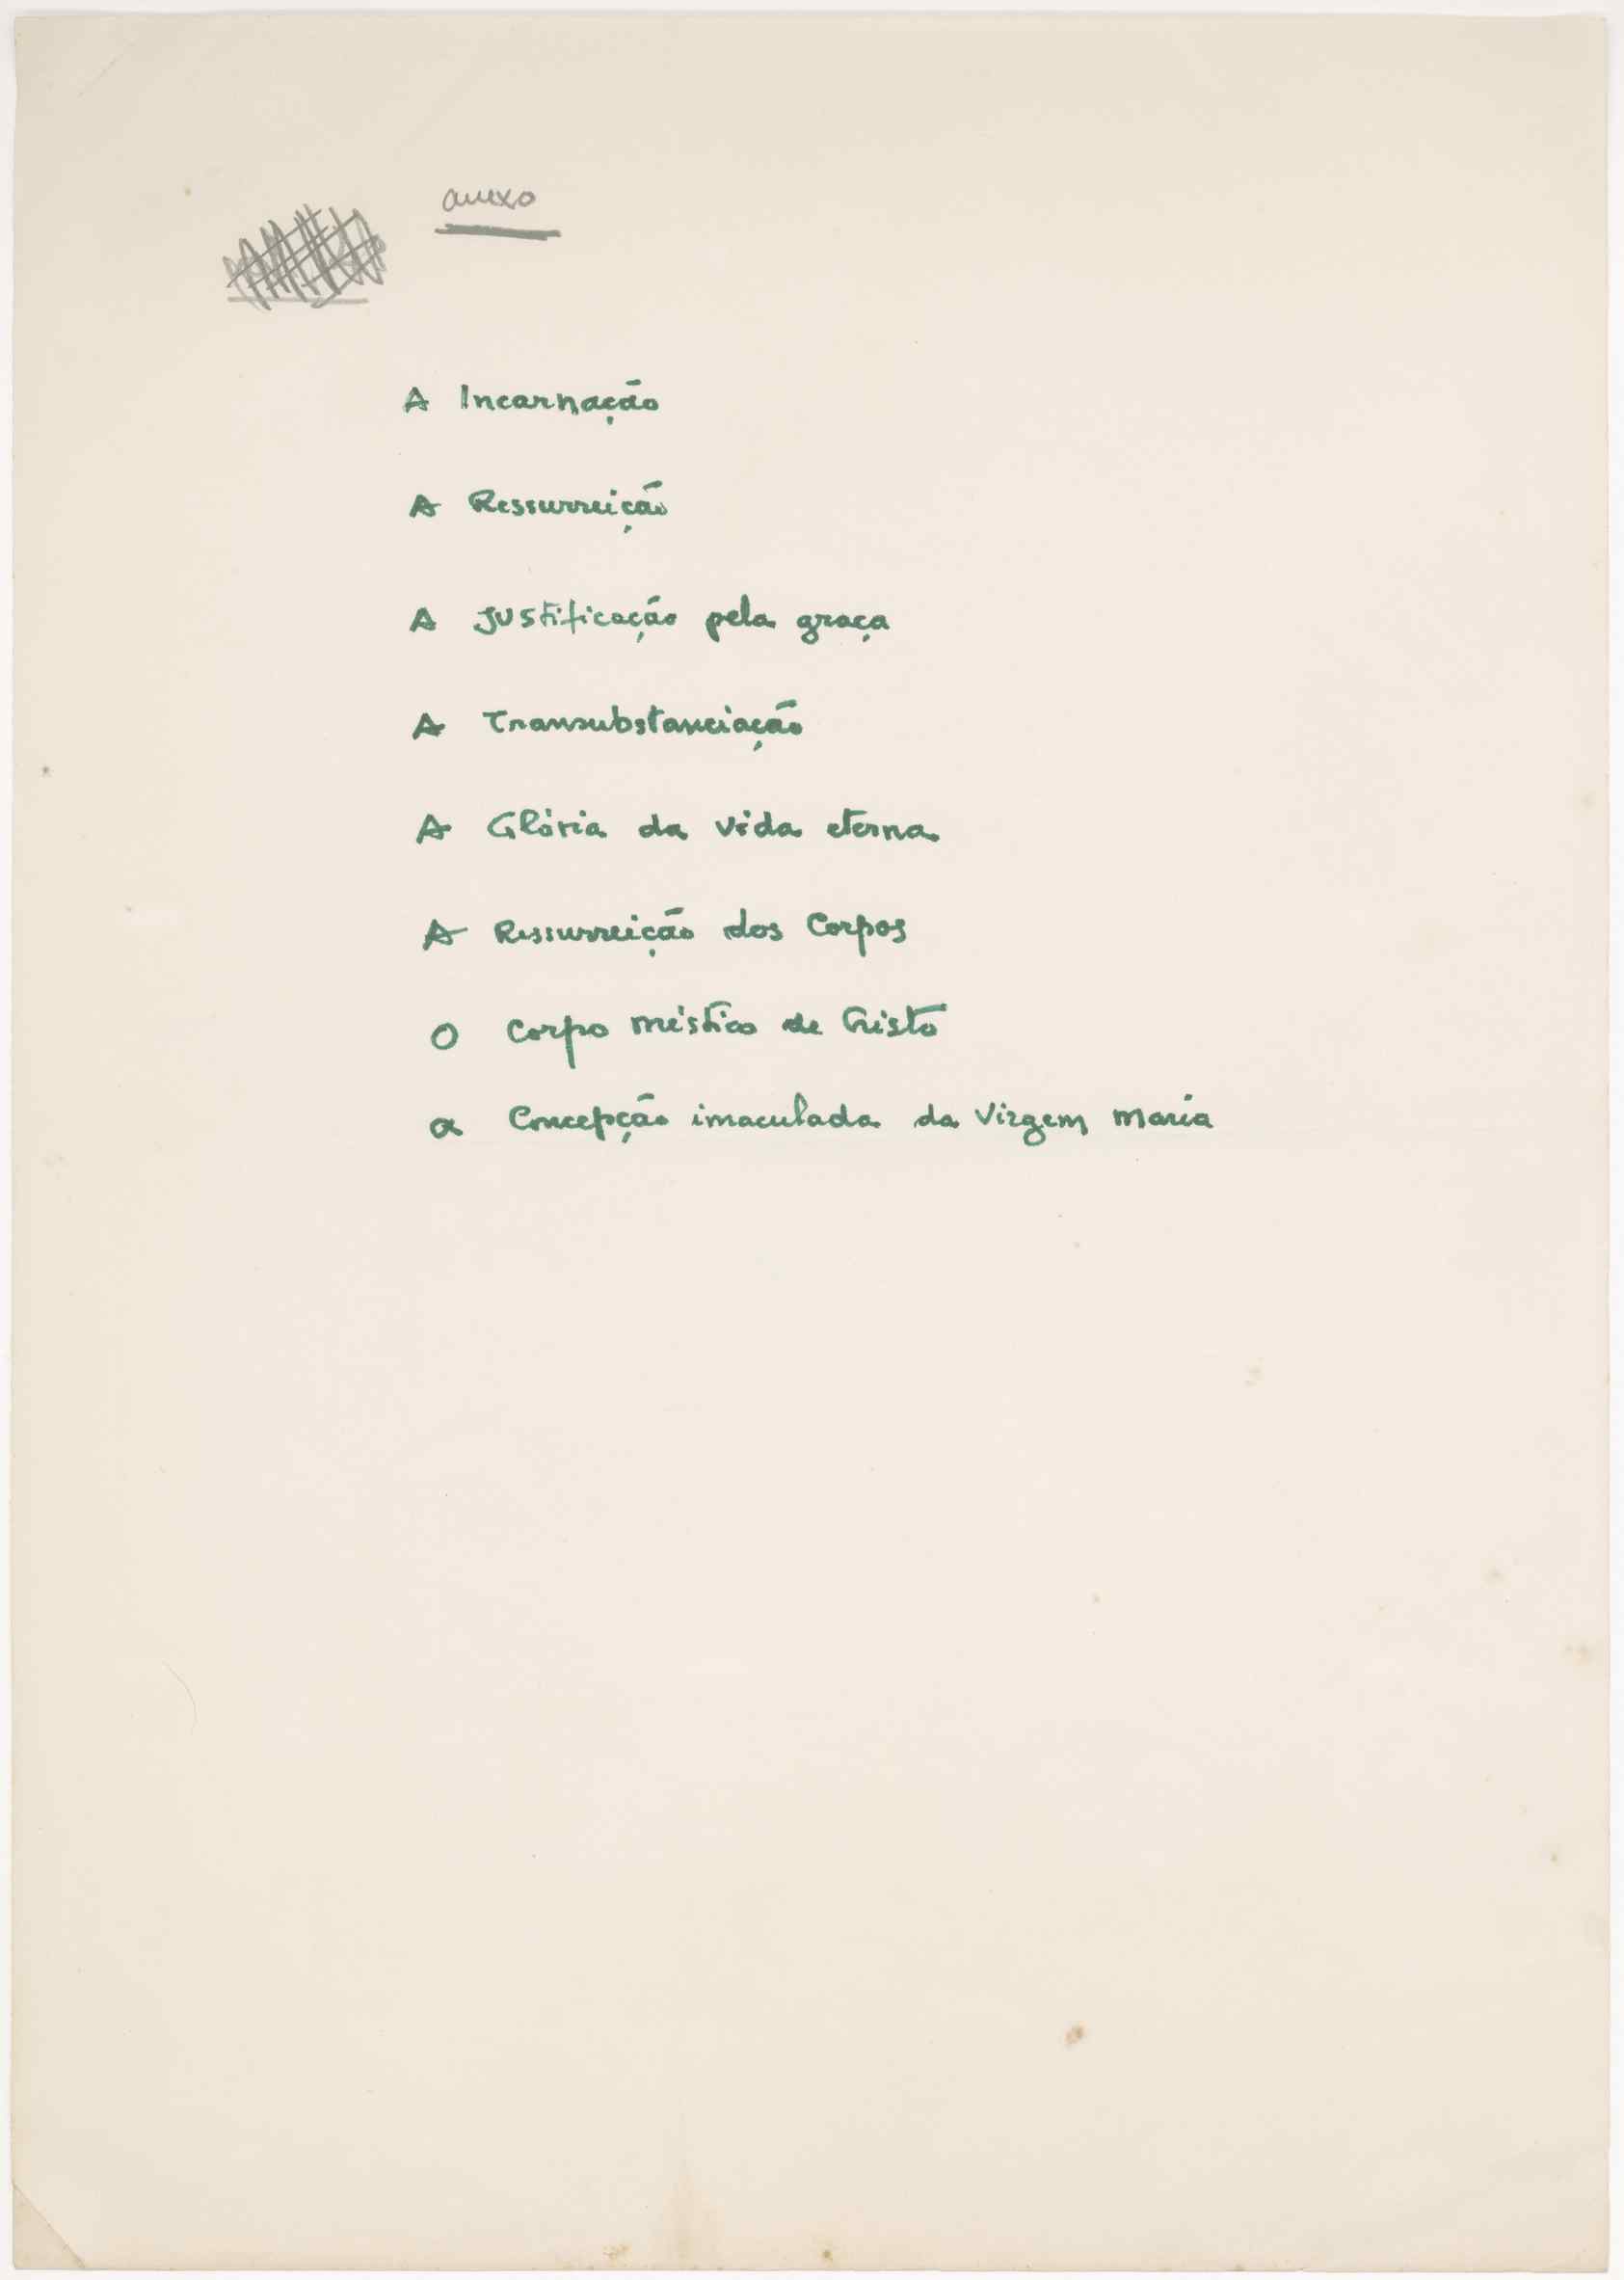 anexo
A Incarnação
A Ressurreição
A Justificação pela graça
A Transubstanciação
A Glória da vida eterna
A Ressurreição dos Corpos
O Corpo místico de Cristo
a Concepção imaculada da Virgem Maria